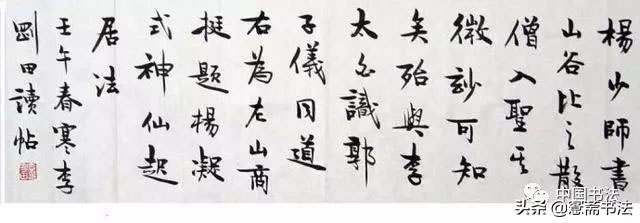 楊少師書
山谷比之散
僧入聖其
微玅可知
矣殆與李
太白識郭
子儀同道
右為左山商
挺題楊凝
式神仙起
居法
壬午春寒李
剛田讀帖
中国书法
头条@斋书法